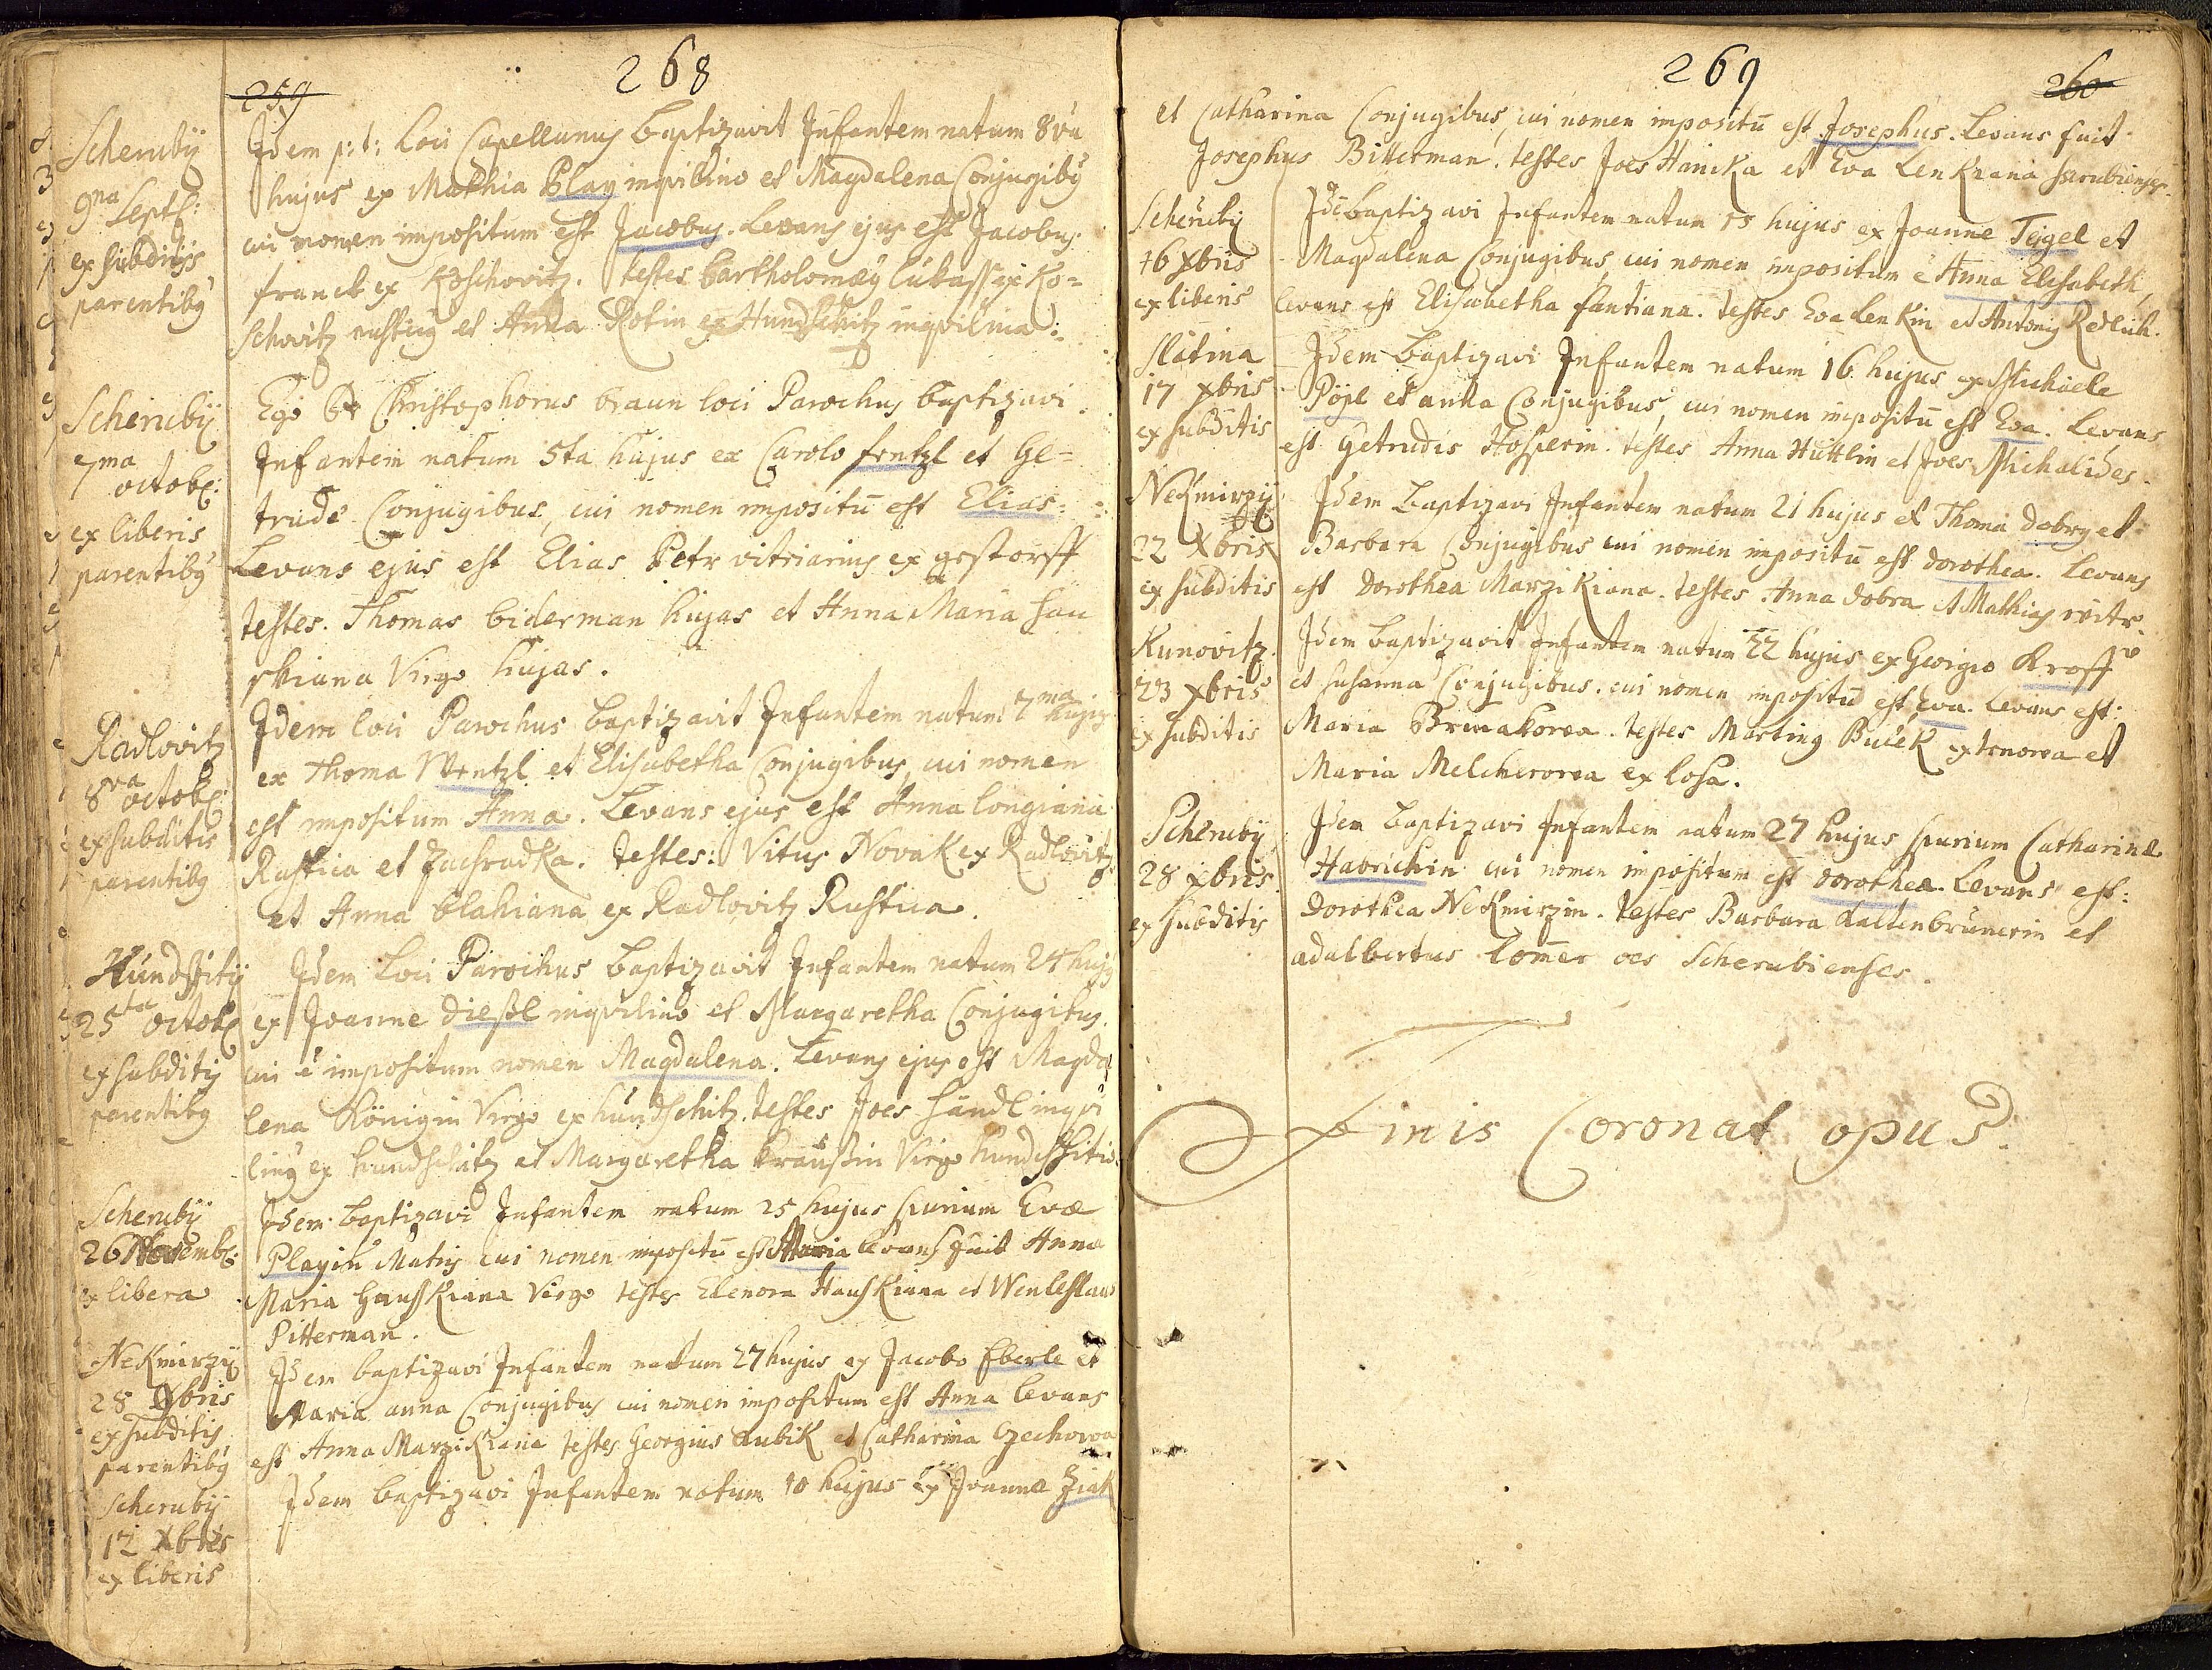 268
259
Scherubij
9na Septe:
ex subditijs
parentibg
Idem p: t: loci Capellanus baptizavit Infantem natum 8va
hujus ex Mathia Play inqvilino et Magdalena Conjugibg
cui nomen impositum est Jacobus. Levans ejus est Jacobus
franck ex Koschovitz. testes bartholomæg lukass ex Ko=
schovitz rusticg et Anna Rotin ex Hundschitz inqvilina.
Scherubij
7ma
octobr:
ex liberis
parentibg
Ego Christophorus braun loci Parochus baptizavi
Infantem natum 5ta hujus ex Carolo frntzl et Ge=
trude Conjugibus, cui nomen impositū est Elias.
Levans ejus est Elias Petr vitriarius ex gestorff
testes. Thomas biderman hujas et Anna Maria hau
skiana Virgo hujas.
Radlovitz
8va octobr:
ex subditis
parentibg
Idem loci Parochus baptizavit Infantem natum 7ma hujg
ex Thoma Wentzl et Elisabetha Conjugibus, cui nomen
est impositum Anna. Levans ejus est Anna longiana
Rustica et Zaesradka. testes: Vitus Novak ex Radlovitz
et Anna blahiana ex Radlovitz Rustica.
Hundssitij
25ta octobr
ex subditis
parentibg
Idem Loci Parochus baptizavit Infantem natum 24 hujg
ex Joanne dießl inqvilino et Margaretha Conjugibus
cui ē impositum nomen Magdalena. Levans ejus est Magda
lena Königin Virgo ex hundschitz. testes Joes händl inqvi
ling ex hundschitz et Margaretha kraußin Virgo
Scherubij
26 Novembr:
ex libera
Idem baptizavi Infantem natum 25 hujus spurium Evæ
Playin Matris cui nomen impositū est Maria levans fuit Anna
Maria Hauskiana Virgo testes Elenora Hauskiana et Wenleslaus
Pitterman.
Nekmirzij
28 Xbris
ex subditis
parentibg
Idem baptizavi Infantem natum 27 hujus ex Jacobo Eberle et
Maria anna Conjugibus cui nomen impositum est Anna levans
est Anna Marzikiana testes Georgius Aubik et Catharina Czechowa
Scherubij
12 Xbris
ex liberis
Idem baptizavi Infantem natum 10 hujus ex Joanne Ziak
269
260
et Catharina Conjugibus, cui nomen impositū est Josephus. Levans fuit
Josephus Bitterman. testes Joes Hanika et Eva Lenkiana
Scherubij
16 Xbris
ex liberis
Idē baptizavi Infantem natum 15 hujus ex Joanne Teigel et
Magdalena Conjugibus, cui nomen impositum ē Anna Elisabeth,
levans est Elisabetha fantiana. testes Eva lenkin et Antonig Redlich.
Slatina
17 Xbris
ex subditis
Idem baptizavi Infantem natum 16 hujus ex Michaele
Pöjl et anna Conjugibus, cui nomen impositū est Eva. Levans
est Getrudis Hosperin. testes Anna Huttlin et Joes Michalides.
Nekmirzij
22 Xbris
ex subditis
Idem baptizavi Infantem natum 21 hujus ex Thoma dobry et
Barbara Conjugibus cui nomen impositū est dorothea. Levans
est Dorothea Marzikiana. testes Anna dobra et Mathias
Kunovitz
23 Xbris
ex subditis
Idem baptizavit Infantem natum 22 hujus ex Georgio Kroff
et susanna Conjugibus. cui nomen impositū est Eva. Levans est:
Maria Brmakowa. testes Marting Buček ex trnowa et
Maria Melcherowa ex losa.
Scherubij
28 Xbris
ex subditis
Idem baptizavi Infantem natum 27 hujus spurium Catharinæ
Havrichin cui nomen impositum est dorothea. Levans est:
Dorothea Nekmirzin. testes Barbara Kaltenbrunerin et
adalbertus lom̄er oes Scherubienses.
Finis Coronat opus.